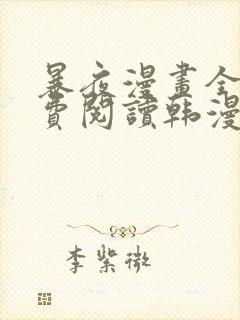 暴夜漫畫全
費閱讀韩漫
李紫微